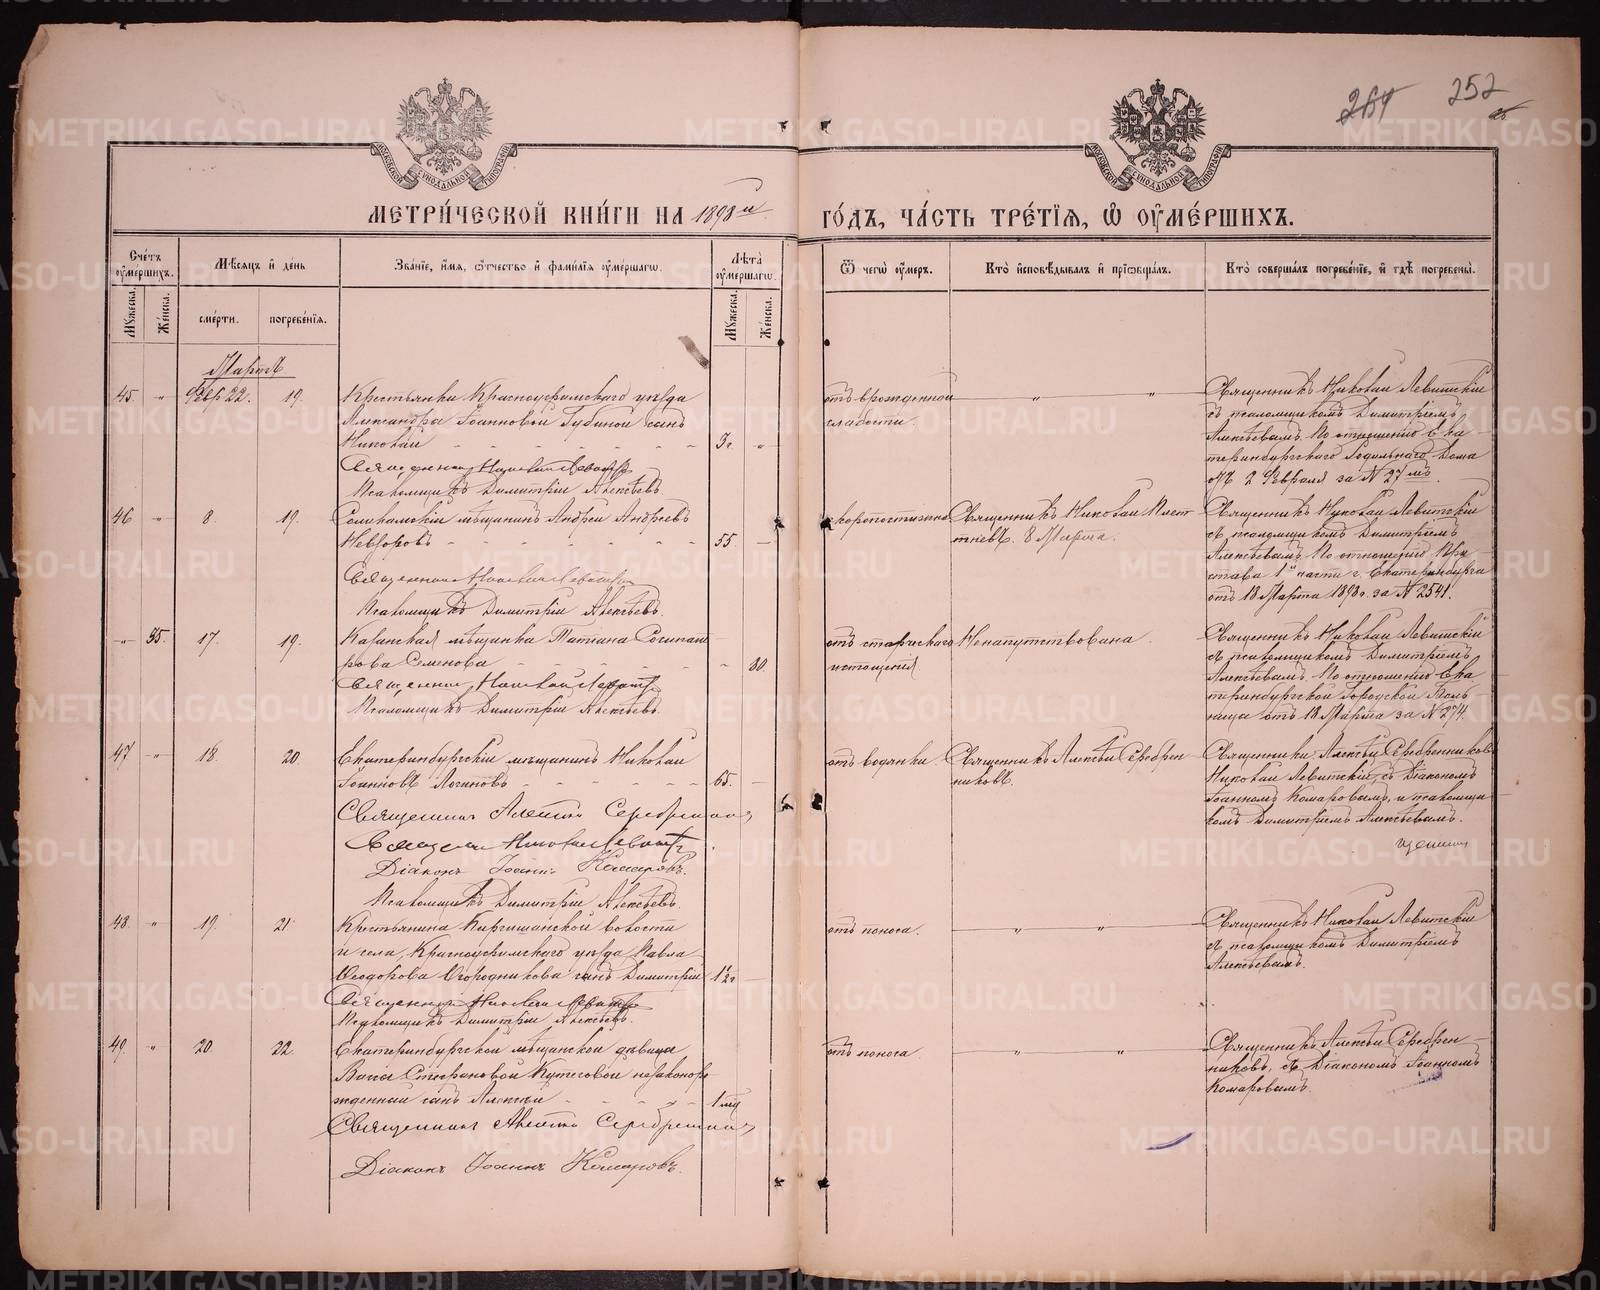 252
МЕТРИ́ЧЕСКОЙ КНИ́ГИ НА 1898й ГО́ДЪ, ЧА́СТЬ ТРЕ́ТІѦ, Ѡ ОУМЕ́РШИХЪ.
Сче́тъ оуме́ршихъ.
Мѣ́сяцъ и де́нь
Зва́ніе, и́мя, о́тчество и фами́лія оуме́ршагѡ.
Лѣ́та оуме́ршагѡ.
Ѿ чегѡ̀ о҆у́меръ.
Кто̀ и҆сповѣ́дывалъ и҆ прїѡбща́лъ.
Кто̀ соверша́лъ погребе́нїе, и҆ гдѣ̀ погребены̀.
Му́жеска.
Же́нска.
сме́рти.
погребе́нїя.
Му́жеска.
Же́нска.
Мартъ
45. " Февр 22. 19. Крестьянки Красноуфимскаго уѣзда
Александры Іоанновой Губиной сынъ
Николай 3г "
Священникъ Николай Левитскій
Псаломщикъ Димитрій Алексѣевъ.
отъ врожденной
слабости.
" "
Священникъ Николай Левитскій
съ псаломщикомъ Димитріемъ
Алексѣевымъ. По отношенію Ека
теринбургскаго Родильнаго Дома
отъ 2 Февраля за № 27мъ.
46 " 8. 19. Соликамскій мѣщанинъ Андрей Андреевъ
55.
Священникъ Николай Левитскій
Псаломщикъ Димитрій Алексѣевъ.
скоропостижно
Священникъ Николай Плет
невъ. 8 Марта.
Священникъ Николай Левитскій
съ псаломщикомъ Димитріемъ
Алексѣевымъ. По отношенію При
става 1й части г. Екатеринбурга
отъ 18 Марта 1898г. за № 2541.
" 35. 17. 19. Казанская мѣщанка Татіана
Семенова " 80.
Священникъ Николай Левитскій
Псаломщикъ Димитрій Алексѣевъ.
отъ старческаго
истощенія
Ненапутствована.
Священникъ Николай Левитскій
съ псаломщикомъ Димитріемъ
Алексѣевымъ. По отношенію Ека
теринбургской Городской Боль
ницы отъ 18 Марта за № 274.
47 " 18. 20 Екатеринбургскій мѣщанинъ Николай
Іоанновъ Логиновъ 65.
Священникъ Алексѣй Серебренниковъ
Священникъ Николай Левитскій
Діаконъ Іоаннъ Комаровъ.
Псаломщикъ Димитрій Алексѣевъ.
отъ водянки.
Священникъ Алексѣй Серебрен
никовъ.
Священники Алексѣй Серебренниковъ
Николай Левитскій, съ Діакономъ
Іоанномъ Комаровымъ, и псаломщи
комъ Димитріемъ Алексѣевымъ.
48. " 19. 21. Крестьянина Киргишанской волости
и села, Красноуфимскаго уѣзда Павла
Ѳеодорова Огородникова сынъ Димитрій
Священникъ Николай Левитскій
Псаломщикъ Димитрій Алексѣевъ.
отъ поноса.
" "
Священникъ Николай Левитскій
съ псаломщикомъ Димитріемъ
Алексѣевымъ.
49. " 20. 22. Екатеринбургской мѣщанской дѣвицы
Стефановой незаконоро
жденный сынъ Алексѣй 1 мц
Священникъ Алексѣй Серебренниковъ
Діаконъ Іоаннъ Комаровъ.
отъ поноса
" "
Священникъ Алексѣй Серебрен
никовъ, съ Діакономъ Іоанномъ
Комаровымъ.
METRIKI.GASO-URAL.RU